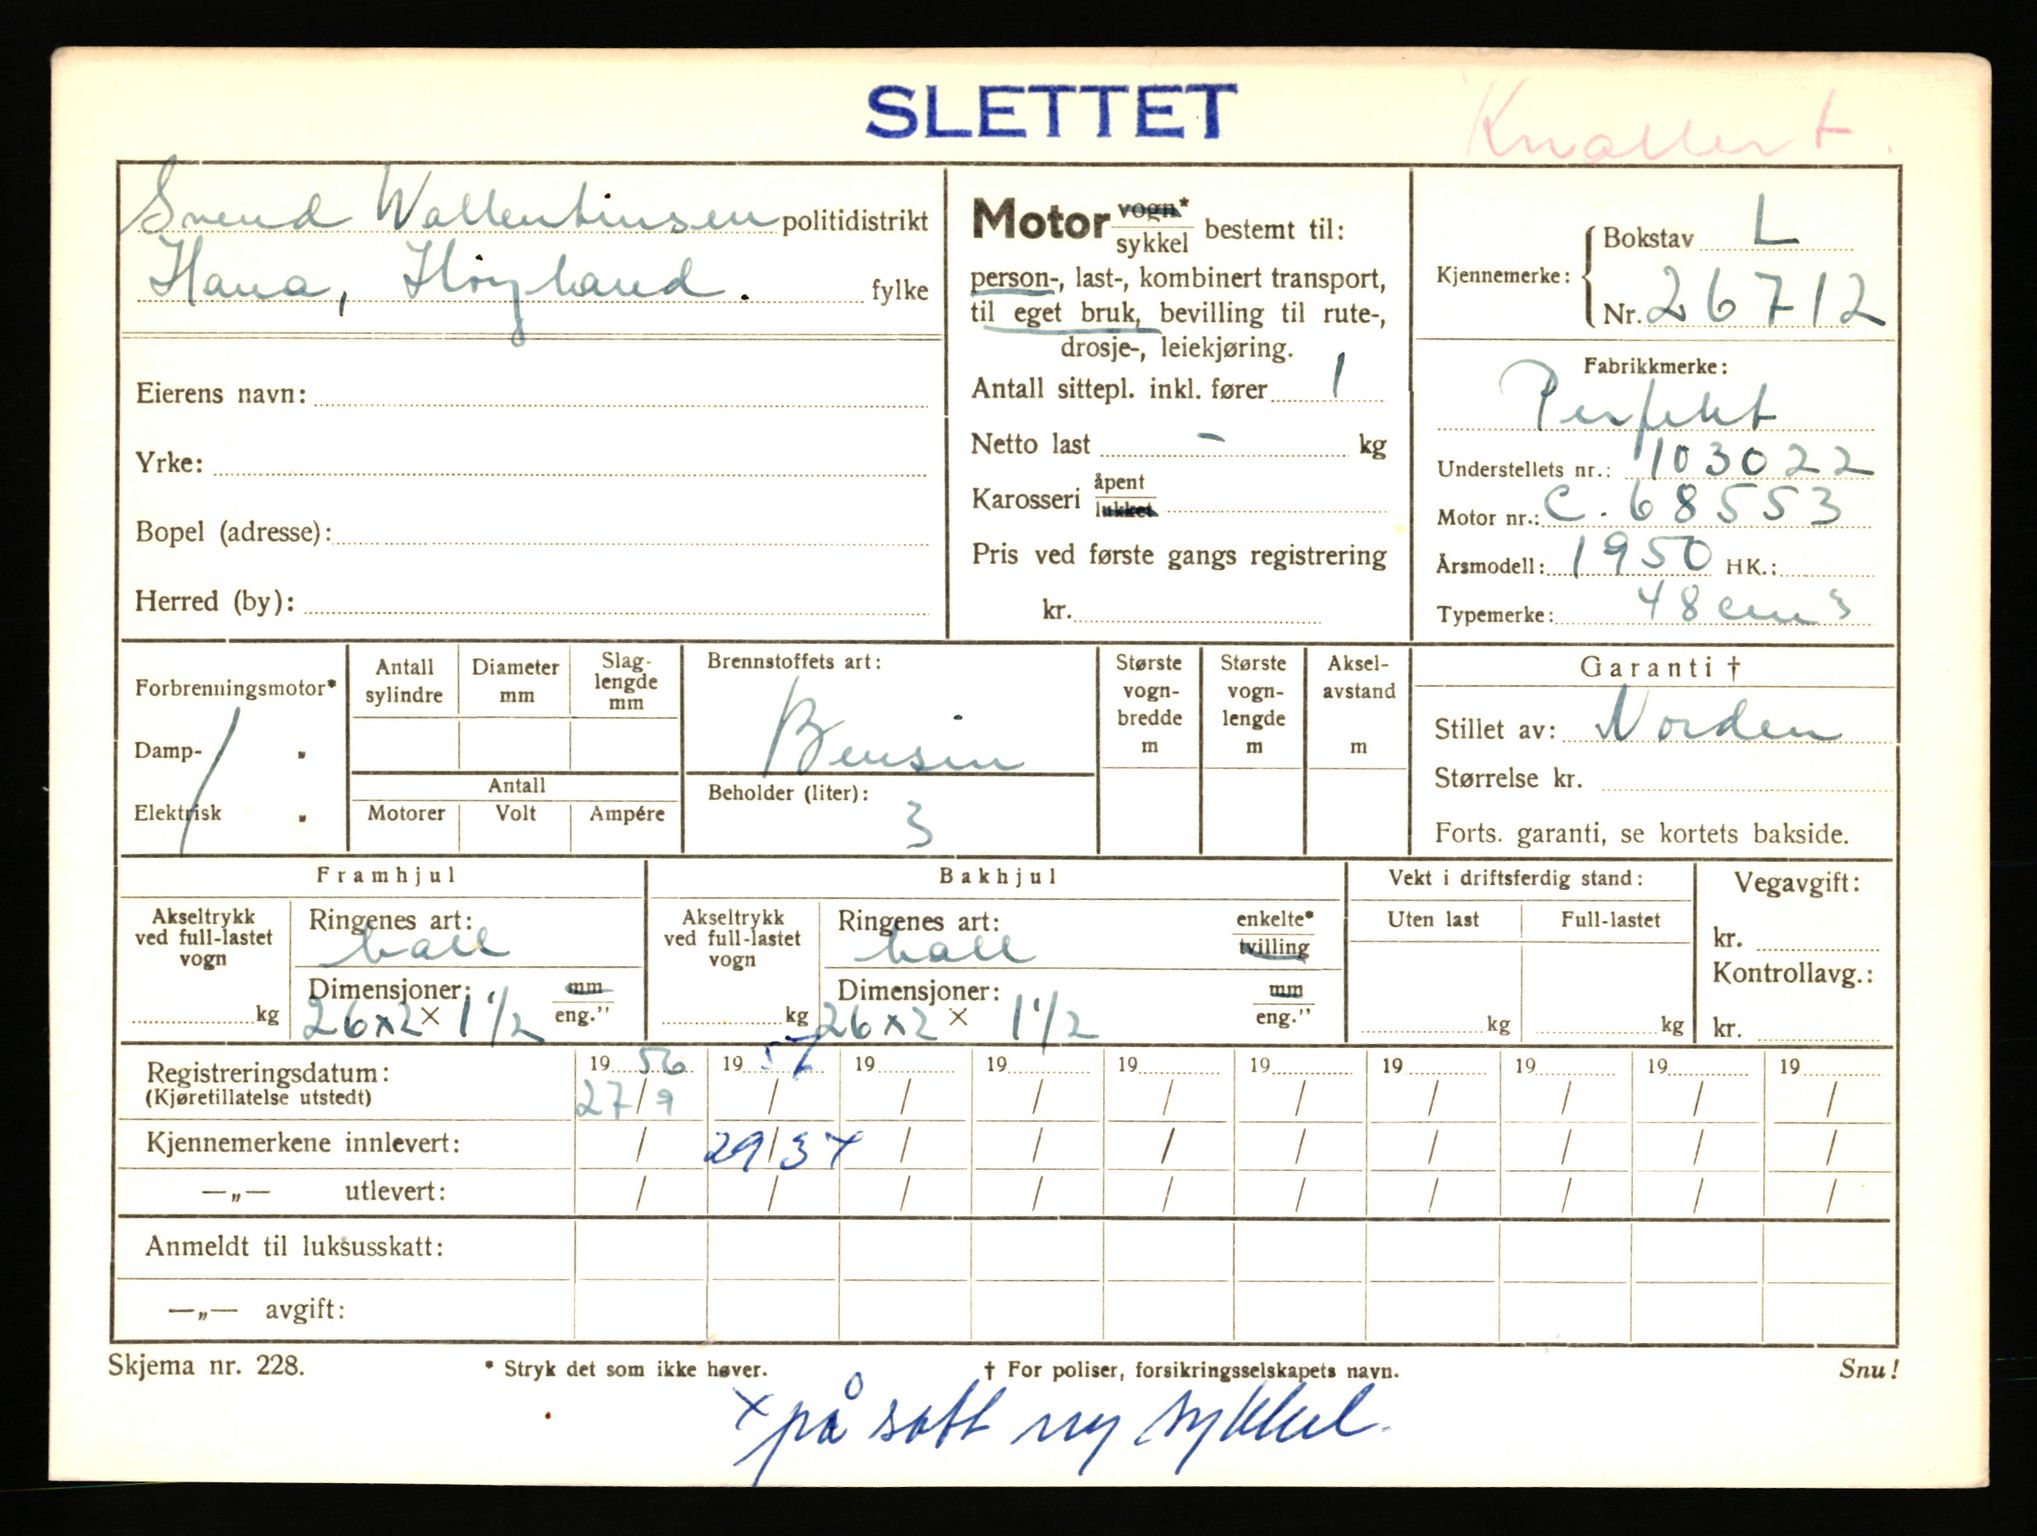 SLETTET
Knallert.
Svend Wallentinsen politidistrikt
Hana, Høyland. fylke
Eierens navn:
Yrke:
Bopel (adresse):
Herred (by):
Motor vogn* / sykkel bestemt til:
person-, last-, kombinert transport,
til eget bruk, bevilling til rute-,
drosje-, leiekjøring.
Antall sittepl. inkl. fører 1
Netto last - kg
Karosseri åpent / lukket
Pris ved første gangs registrering
kr.
Kjennemerke: Bokstav L
Nr. 26712
Fabrikkmerke:
Perfekt
Understellets nr.: 103022
Motor nr.: C. 68553
Årsmodell: 1950 HK.:
Typemerke: 48 cm3
Forbrenningsmotor*
Damp- "
Elektrisk "
Antall sylindre
Diameter mm
Slag-lengde mm
Antall
Motorer Volt Ampére
Brennstoffets art:
Bensin
Beholder (liter):
3
Største vogn-bredde m
Største vogn-lengde m
Aksel-avstand m
Garanti †
Stillet av: Norden
Størrelse kr.
Forts. garanti, se kortets bakside.
Framhjul
Akseltrykk ved full-lastet vogn
kg
Ringenes art:
ball
Dimensjoner: mm / eng."
26x2 x 1 1/2
Bakhjul
Akseltrykk ved full-lastet vogn
kg
Ringenes art: enkelte* / tvilling
ball
Dimensjoner: mm / eng."
26x2 x 1 1/2
Vekt i driftsferdig stand:
Uten last Full-lastet
kg kg
Vegavgift:
kr.
Kontrollavg.:
kr.
Registreringsdatum: 19 56 19 57 19 19 19 19 19 19 19 19
(Kjøretillatelse utstedt) 27/9 / / / / / / / / /
Kjennemerkene innlevert: / 29/3 x / / / / / / / /
—„— utlevert: / / / / / / / / / /
Anmeldt til luksusskatt:
—„— avgift:
Skjema nr. 228. * Stryk det som ikke høver. † For poliser, forsikringsselskapets navn. Snu!
x på satt ny sykkel.